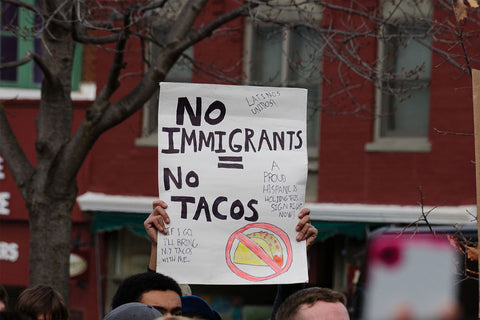 LATINOS
UNIDOS!
NO
IMMIGRANTS
=
NO
TACOS
A
PROUD
HISPANIC IS
HOLDING THIS
SIGN RIGHT
NOW
IF I GO
I'LL BRING
MY TACOS
WITH ME.